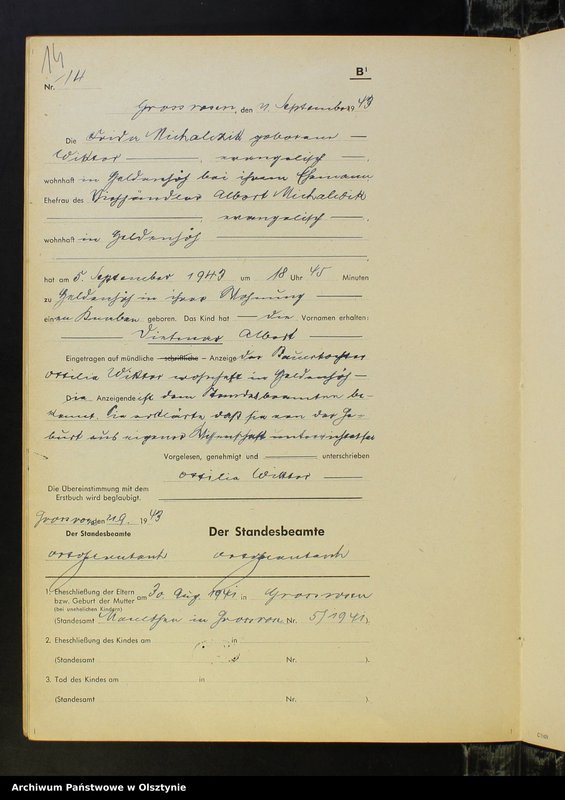 14
B¹
Nr. 14
Grossrosen, den 7. September 1943
Die Frida Michalczik geborene
Wiktor, evangelisch,
wohnhaft in Geldenhöh bei ihrem Ehemann
Ehefrau des Viehhändler Albert Michalczik
evangelisch,
wohnhaft in Geldenhöh
hat am 5. September 1943 um 18 Uhr 45 Minuten
zu Geldenhöh in ihrer Wohnung
einen Knaben geboren. Das Kind hat die Vornamen erhalten:
Dietmar Albert
Eingetragen auf mündliche – schriftliche – Anzeige der Bauerntochter
Ottilie Wiktor wohnhaft in Geldenhöh
Die Anzeigende ist dem Standesbeamten be-
kannt. Sie erklärte, daß sie von der Ge-
burt aus eigener Wissenschaft unterrichtet sei
Vorgelesen, genehmigt und unterschrieben
Ottilie Wiktor
Die Übereinstimmung mit dem
Erstbuch wird beglaubigt.
Grossrosen, den 1943
Der Standesbeamte
Der Standesbeamte
1. Eheschließung der Eltern
bzw. Geburt der Mutter am 30. Aug. 1941 in Grossrosen
(bei unehelichen Kindern)
(Standesamt in Grossrosen Nr. 5/1941).
2. Eheschließung des Kindes am in
(Standesamt Nr. ).
3. Tod des Kindes am in
(Standesamt Nr. ).
Archiwum Państwowe w Olsztynie